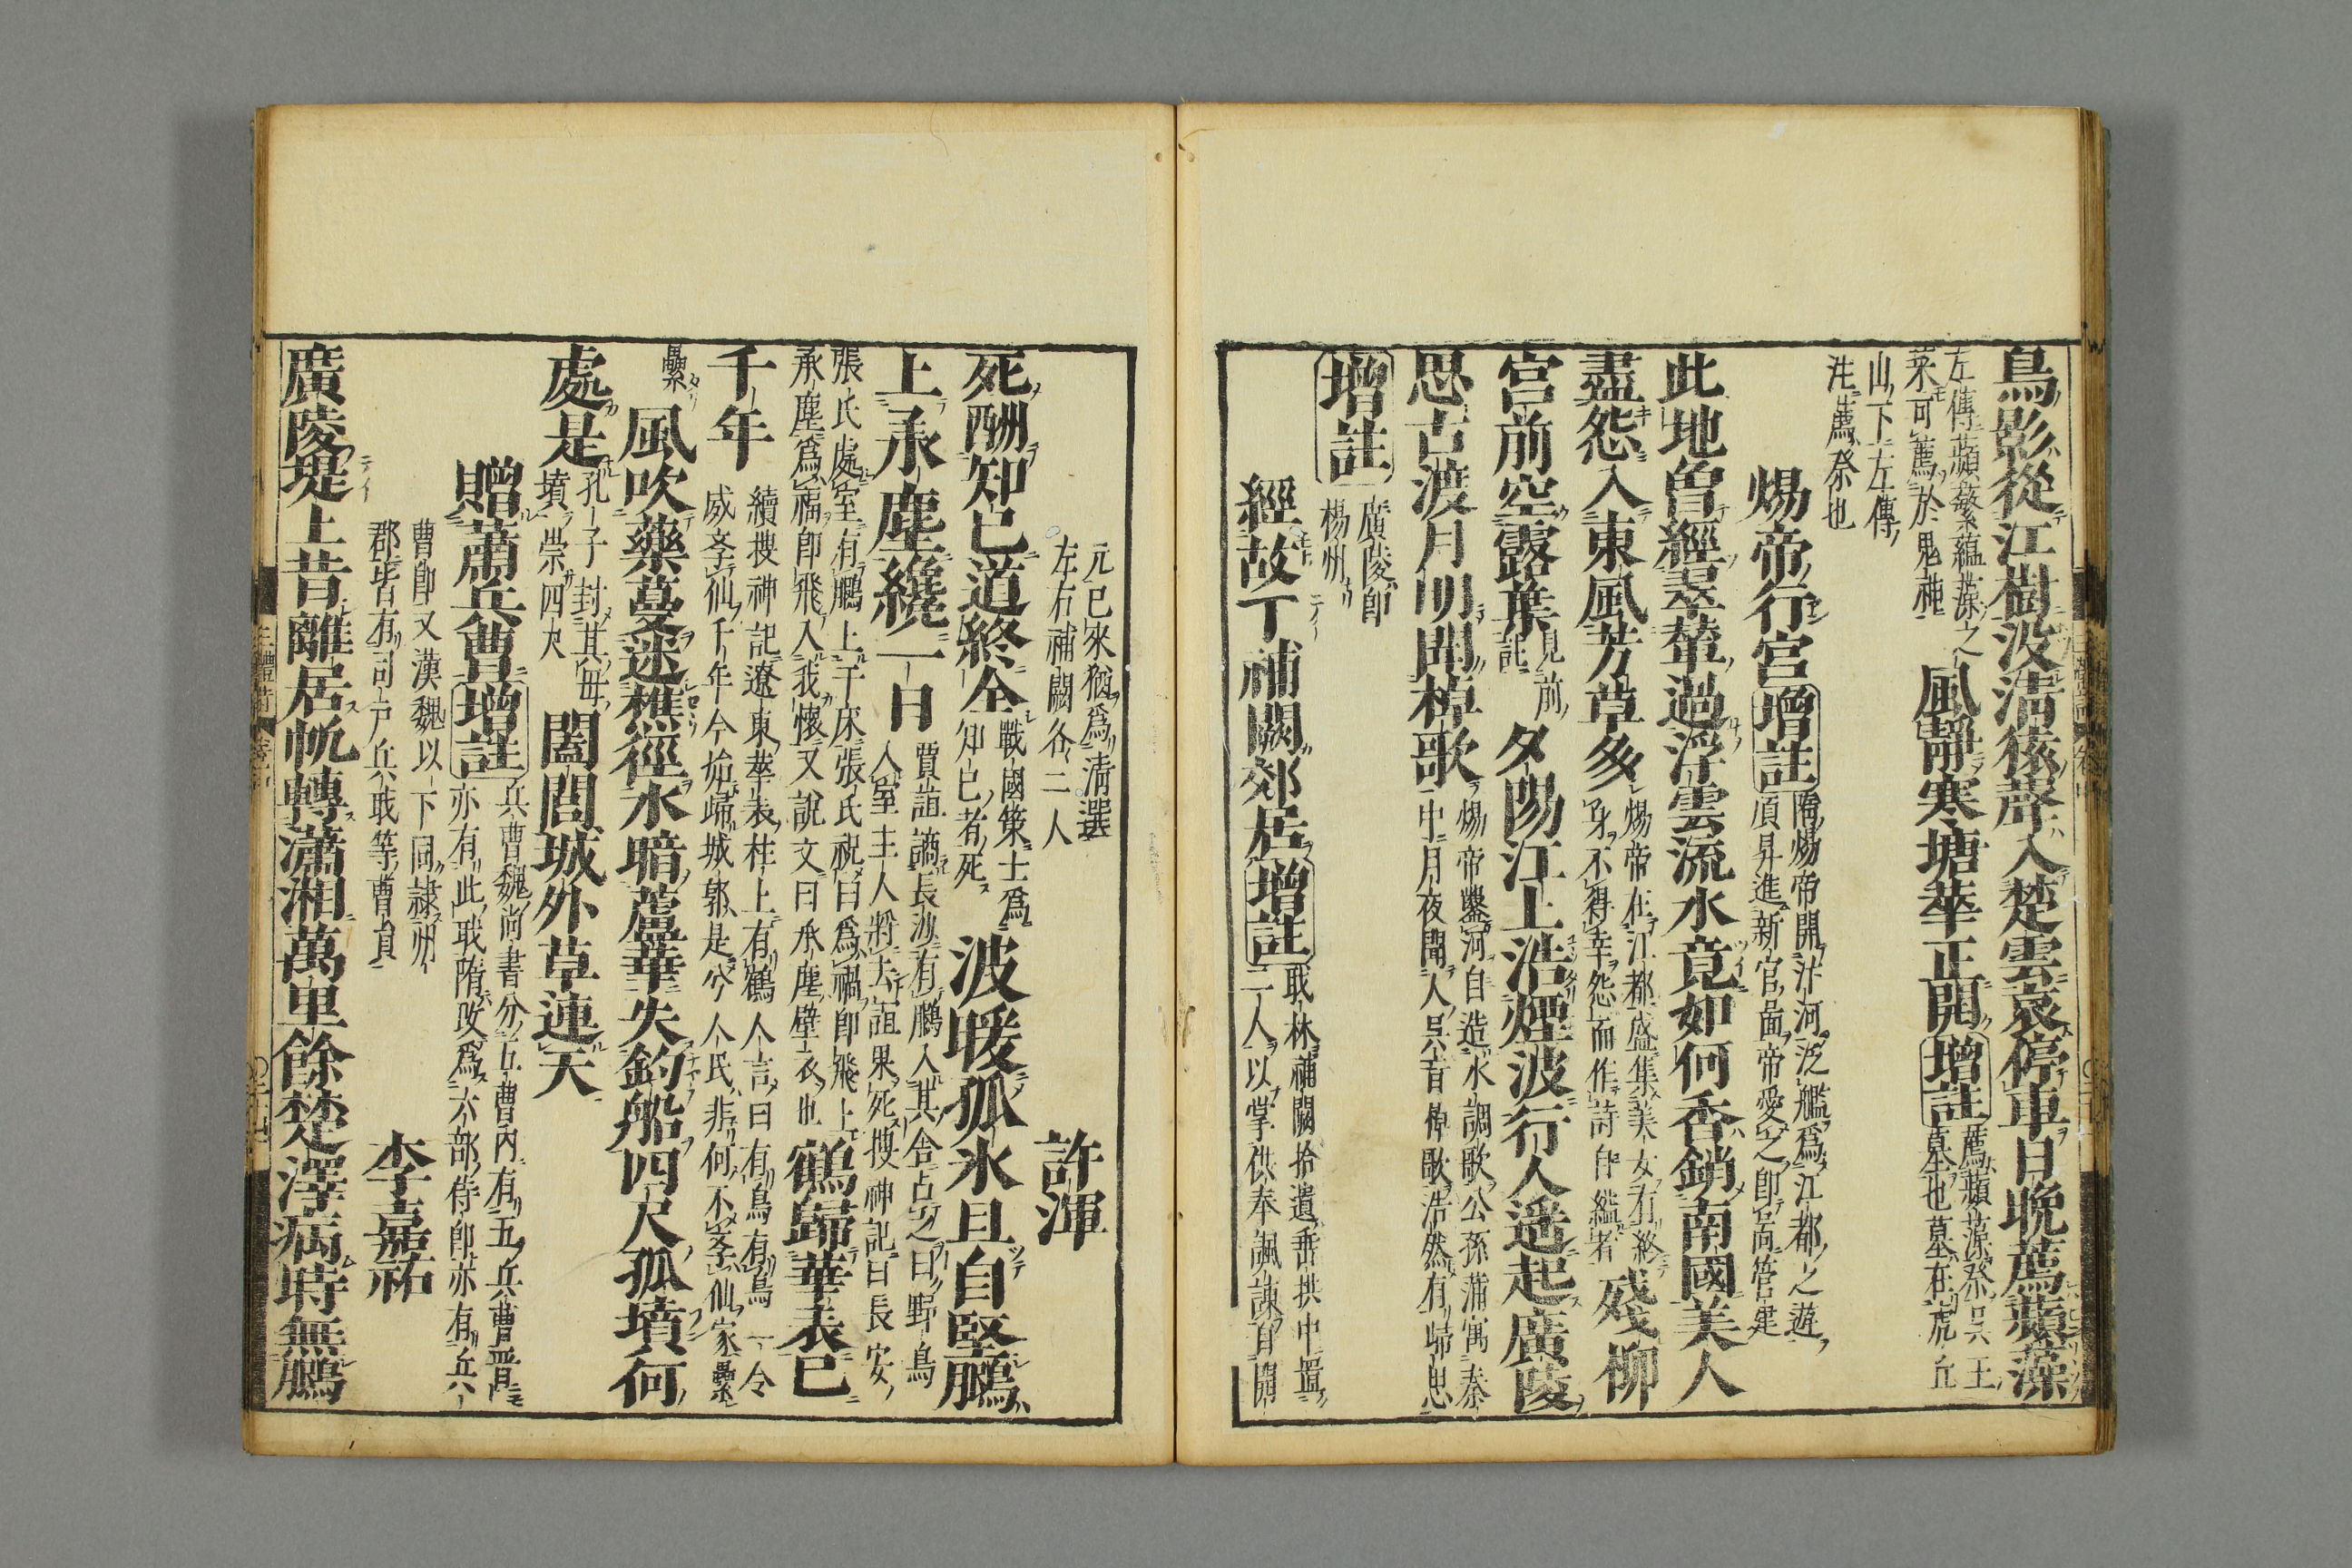 鳥影從江樹没清猿聲入楚雲哀停車日晚薦蘋藻
左傳蘋蘩蘊藻之
菜可薦於鬼神
風靜寒塘華正開
增註
薦蘋藻祭吳王
墓也墓在虎丘
山下左傳
注薦祭也
煬帝行宮
增註
隋煬帝開汴河泛艦爲江都之遊
此地曾經翠輦過浮雲流水竟如何香銷南國美人
盡怨入東風芳草多
煬帝在江都盛集美女有終
身不得幸怨而作詩自縊者
殘柳
宮前空露葉
見前
註
夕陽江上浩煙波行人遥起廣陵
思古渡月明聞棹歌
煬帝鑿河自造水調歌公孫蒲寓秦
中月夜聞人吳音棹歌浩然有歸思
增註
廣陵即
楊州
經故丁補闕郊居
增註
二人以掌供奉諷諫自開
元已來猶爲清選
左右補闕各二人
許渾
死酬知已道終全
戰國策士爲
知已者死
波暖孤氷且自堅鵩
上承塵繞一日
賈誼謫長沙有鵩入其舎占之曰野鳥
入室主人將去誼果死搜神記曰長安
張氏處室有鵩上于床張氏祝曰爲禍即飛上
承塵爲福即飛入我懷又說文曰承塵壁衣也
鶴歸華表已
千年
續搜神記遼東華表柱上有鶴人言曰有鳥有鳥一令
威斈仙千年今始歸城郭是兮人民非何不斈仙家纍
纍
風吹藥蔓迷樵徑水暗蘆華失釣船四尺孤墳何
處是
孔子封其母
墳崇四尺
闔閭城外草連天
贈蕭兵曹
增註
兵曹魏尚書分五曹内有五兵曹晋
亦有此職隋改爲六部侍郎亦有兵
曹郎又漢魏以下同隷州
郡皆有司戸兵職等曹員
李嘉祐
廣陵堤上昔離居帆轉瀟湘萬里餘楚澤病時無鵩